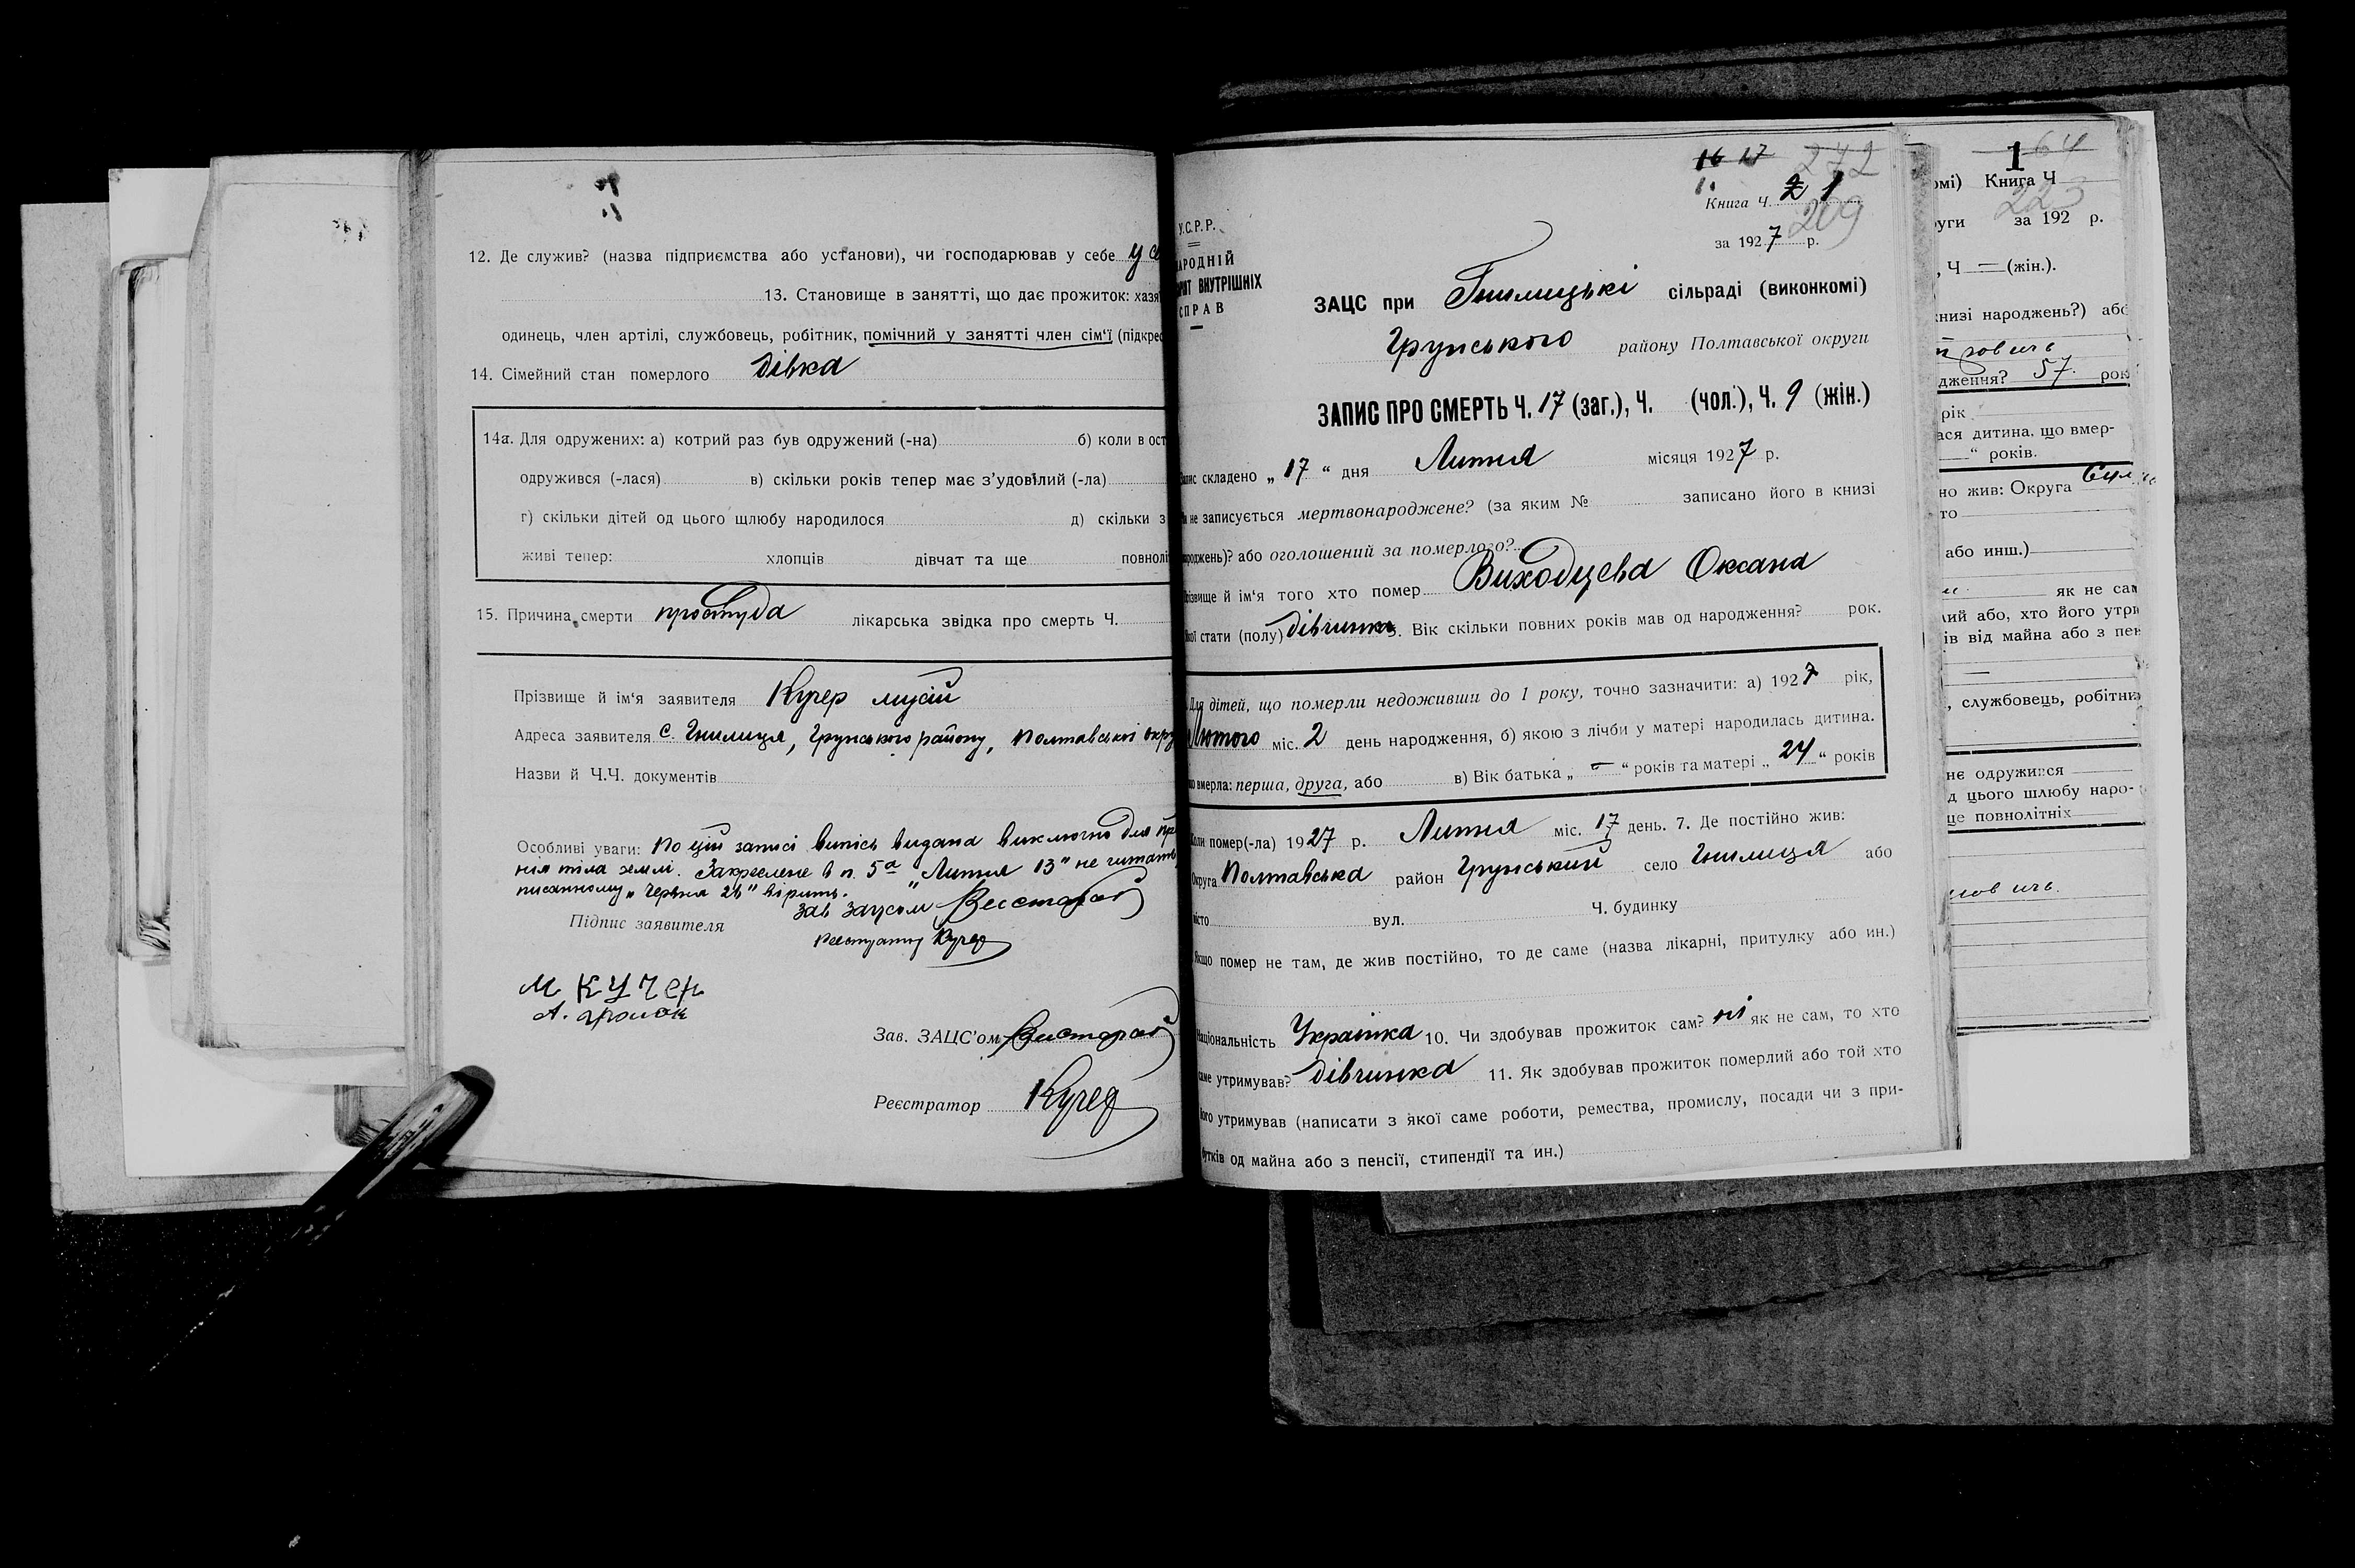 12. Де служив? (назва підприємства або установи), чи господарював у себе у се
13. Становище в занятті, що дає прожиток: хазя
одинець, член артілі, службовець, робітник, помічний у занятті член сім'ї (підкрес
14. Сімейний стан померлого дівка
14а. Для одружених: а) котрий раз був одружений (-на) б) коли в ост
одружився (-лася) в) скільки років тепер має з'удовілий (-ла)
г) скільки дітей од цього щлюбу народилося д) скільки з
живі тепер: хлопців дівчат та ще повноліт
15. Причина смерти простуда лікарська звідка про смерть Ч.
Прізвище й ім'я заявителя Кучер мусій
Адреса заявителя с. Гнилиця, Грунського району, Полтавської окру
Назви й Ч.Ч. документів
Особливі уваги: По цій записі випісь видана виключно для пр
ня тіла землі. Закреслене в п. 5а "Липня 13" не читать
писанному "Червня 26" вірить.
Зав Зацсом
Підпис заявителя
Реєстратор Кучер
М КУЧер
А.
Зав. ЗАЦС'ом
Реєстратор Кучер
16 17 272
1. Книга Ч. 2 1
209
за 1927 р.
У.С.Р.Р.
АРОДНІЙ
РІАТ ВНУТРІШНІХ
СПРАВ
ЗАЦС при Гнилицькі сільраді (виконкомі)
Грунського району Полтавської округи
ЗАПИС ПРО СМЕРТЬ Ч. 17 (заг.), Ч. (чол.), Ч. 9 (жін.)
пис складено „17“ дня Липня місяця 1927 р.
и не записується мертвонароджене? (за яким № записано його в книзі
роджень)? або оголошений за померлого?
різвище й ім'я того хто помер Виходцева Оксана
кої стати (полу) дівчинка 5. Вік скільки повних років мав од народження? рок.
Для дітей, що померли недоживши до 1 року, точно зазначити: а) 1927 рік,
Лютого міс. 2 день народження, б) якою з лічби у матері народилась дитина.
що вмерла: перша, друга, або в) Вік батька „ – “ років та матері „ 24 “ років
Коли помер(-ла) 1927 р. Липня міс. 17 день. 7. Де постійно жив:
Округа Полтавська район Грунський село Гнилиця або
місто вул. Ч. будинку
Якщо помер не там, де жив постійно, то де саме (назва лікарні, притулку або ин.)
Національність Українка 10. Чи здобував прожиток сам? ні як не сам, то хто
саме утримував? дівчинка 11. Як здобував прожиток померлий або той хто
його утримував (написати з якої саме роботи, ремества, промислу, посади чи з при-
бутків од майна або з пенсії, стипендії та ин.)
1 64
омі) Книга Ч
223
уги за 192 р.
, Ч — (жін.).
книзі народжень?) або
дження? 57. рок
рік
ася дитина, що вмер-
—“ років.
но жив: Округа
то
або инш.)
як не сам
ий або, хто його утри
ів від майна або з пен
—
, службовець, робітни
нє одружився
д цього шлюбу наро-
це повнолітніх